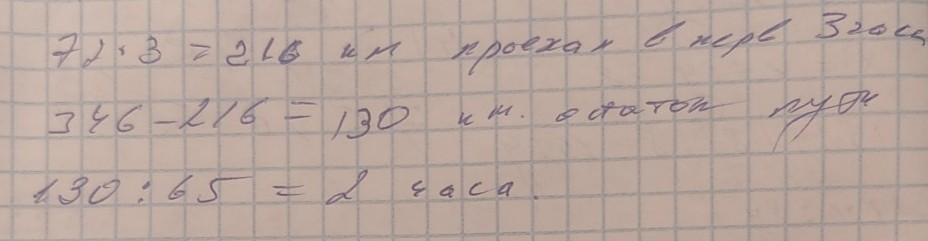 72 · 3 = 216 км проехал в перв 3 часа
346 - 216 = 130 км. остаток пути
130 : 65 = 2 часа.